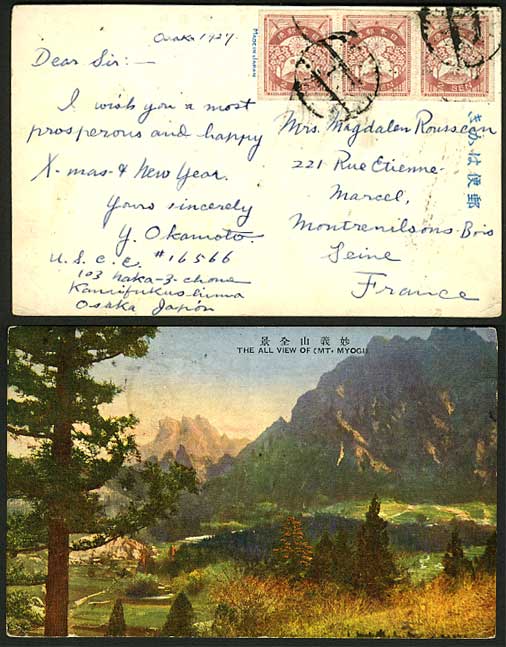 Osaka 1927
Made in Japan
Dear Sir:—
I wish you a most
prosperous and happy
X-mas & New Year.
Yours sincerely
Y. Okamoto.
U. S. C. C. #16566
103 Naka-3-chome
Kamifukushima
Osaka Japan
Mrs. Magdalen Rousseau
221 Rue Etienne
Marcel,
Montreuilsons-Bois
Seine
France
きがは便郵
景全山義妙
THE ALL VIEW OF (MT. MYOGI).